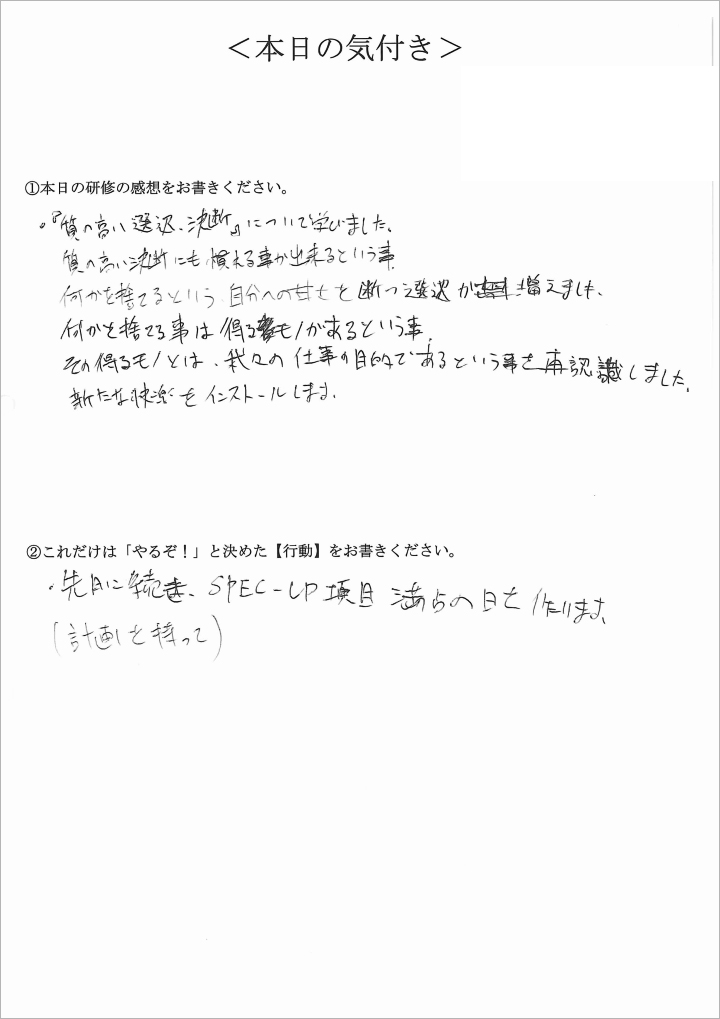 ＜本日の気付き＞
①本日の研修の感想をお書きください。
・『質の高い選択、決断』について学びました。
質の高い決断にも慣れる事が出来るという事。
何かを捨てるという自分への甘えを断つ選択が増えました。
何かを捨てる事は得るモノがあるという事。
その得るモノとは、我々の仕事の目的であるという事を再認識しました。
新たな快楽をインストールします。
②これだけは「やるぞ！」と決めた【行動】をお書きください。
・先月に続き、SPEC-UP項目 満点の日を作ります。
(計画を持って)